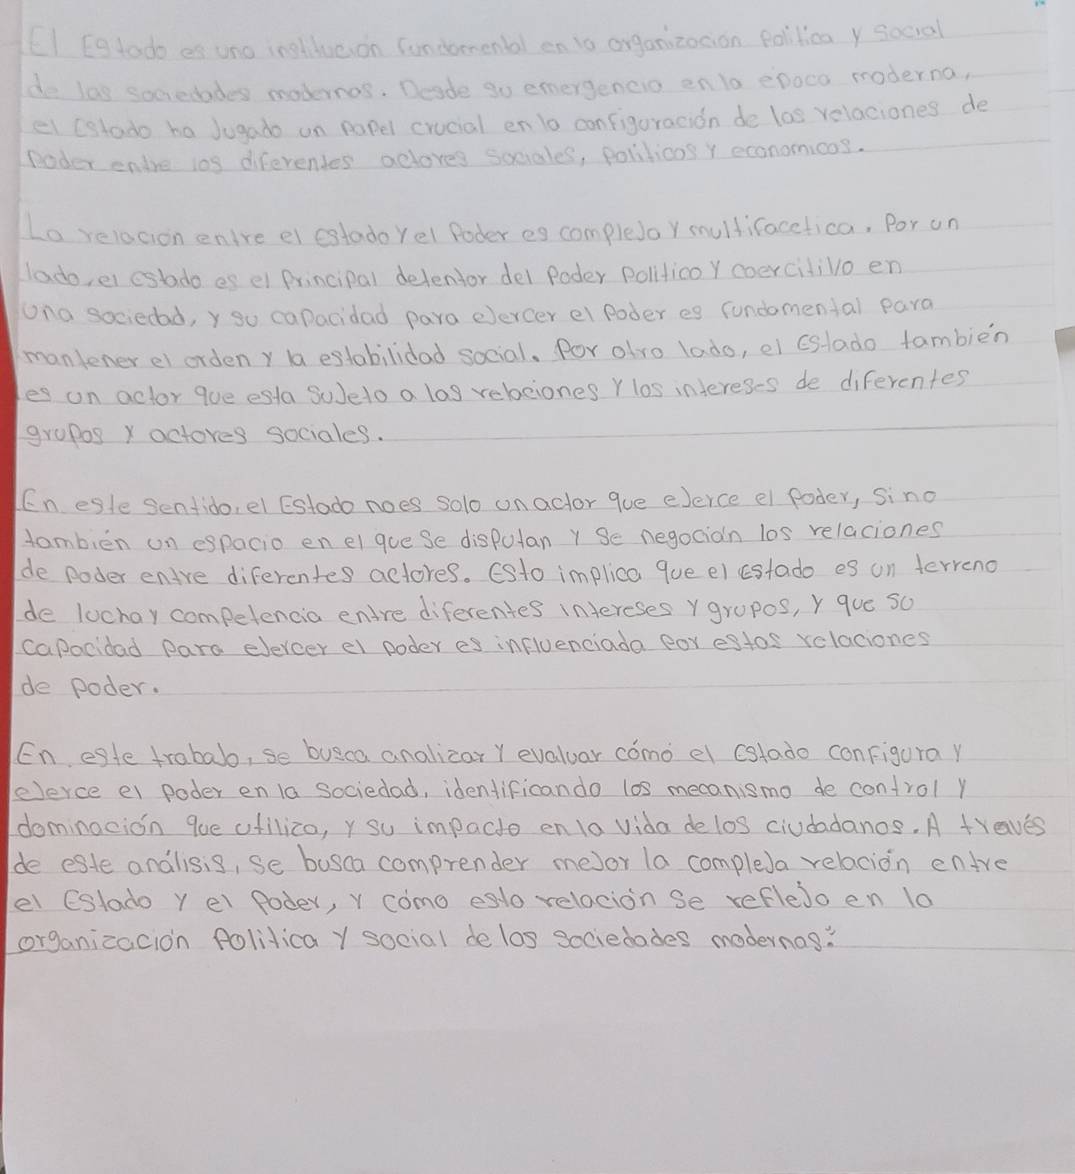 El Estado es una institución fundamental en la organización Política y Social
de las sociedades modernas. Desde su emergencia en la epoca moderna,
el Estado ha Jugado un papel crucial en la configuración de las relaciones de
poder entre los diferentes actores sociales, politicos y economicos.
La relacion entre el estado y el Poder es compleja y multifacetica. Por un
lado, el estado es el Principal detentor del Poder Politico y coercitivo en
una sociedad, y su capacidad para ejercer el Poder es fundamental para
mantener el orden y la estabilidad social. Por otro lado, el Estado también
es un actor que esta sujeto a las relaciones y los intereses de diferentes
grupos y actores sociales.
En este sentido, el Estado no es solo un actor que ejerce el Poder, Sino
también un espacio en el que se disputan y se negocian los relaciones
de poder entre diferentes actores. Esto implica que el estado es un terreno
de lucha y competencia entre diferentes intereses y grupos, y que su
capacidad para ejercer el poder es influenciada por estas relaciones
de poder.
En este trabajo, se busca analizar y evaluar cómo el estado configura y
ejerce el poder en la sociedad, identificando los mecanismo de control y
dominación que utiliza, y su impacto en la vida de los ciudadanos. A través
de este análisis, se busca comprender mejor la compleja relación entre
el Estado y el Poder, y cómo esta relación se refleja en la
organización Politica y social de las sociedades modernas.